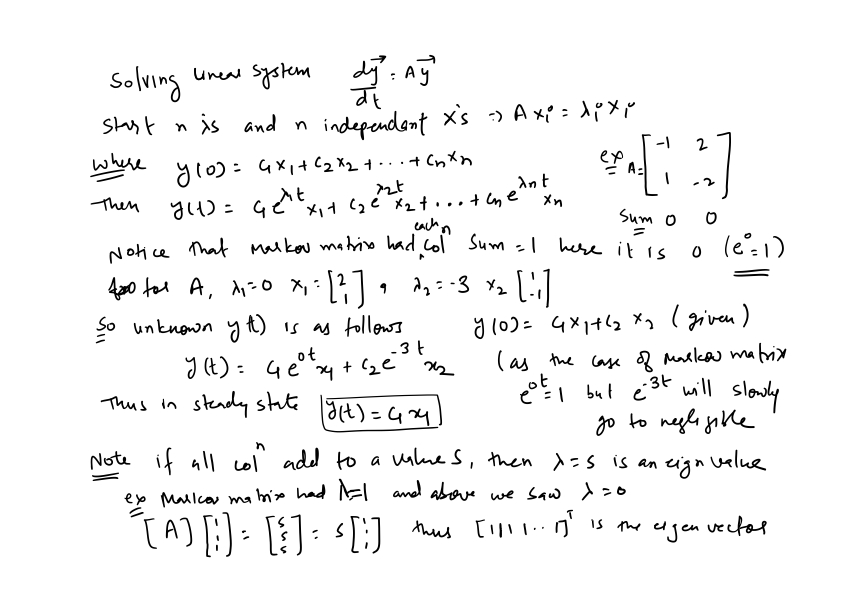 Solving linear system dy⃗/dt = Ay⃗
Start n λs and n independent x's ⇒ A xᵢ = λᵢ xᵢ
where y(0) = c₁x₁ + c₂x₂ + ... + cₙxₙ
ex A = [-1 2; 1 -2]
Then y(t) = c₁e^λ₁t x₁ + c₂e^λ₂t x₂ + ... + cₙe^λₙt xₙ
Sum 0 0
Notice that Markov matrix had each colⁿ sum = 1 here it is 0 (e⁰ = 1)
for A, λ₁ = 0 x₁ = [2; 1] , λ₂ = -3 x₂ [1; -1]
So unknown y(t) is as follows y(0) = c₁x₁ + c₂ x₂ (given)
y(t) = c₁e^0t x₁ + c₂e^-3t x₂ (as the case of Markov matrix
e^0t = 1 but e^-3t will slowly
Thus in steady state y(t) = c₁x₁
go to negligible
Note if all colⁿ add to a value s, then λ = s is an eign value
ex Markov matrix had λ=1 and above we saw λ = 0
[A] [1; 1; 1] = [s; s; s] = s [1; 1; 1] thus [1 1 1 1 .. 1]ᵀ is the eigen vector